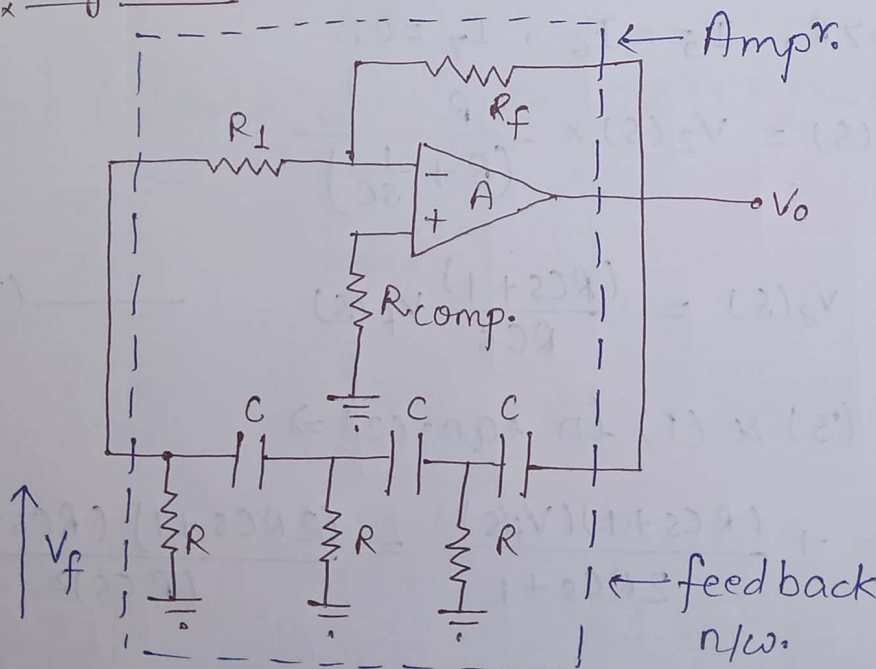 Ampr.
Rf
R1
−
A
+
Vo
Rcomp.
C C C
R R R
Vf
feedback
n/w.